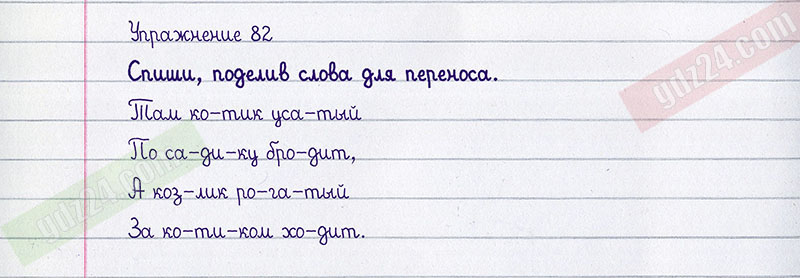 Упражнение 82
Спиши, поделив слова для переноса.
Там ко-тик уса-тый
По са-ди-ку бро-дит,
А коз-лик ро-га-тый
За ко-ти-ком хо-дит.
gdz24.com
gdz24.com